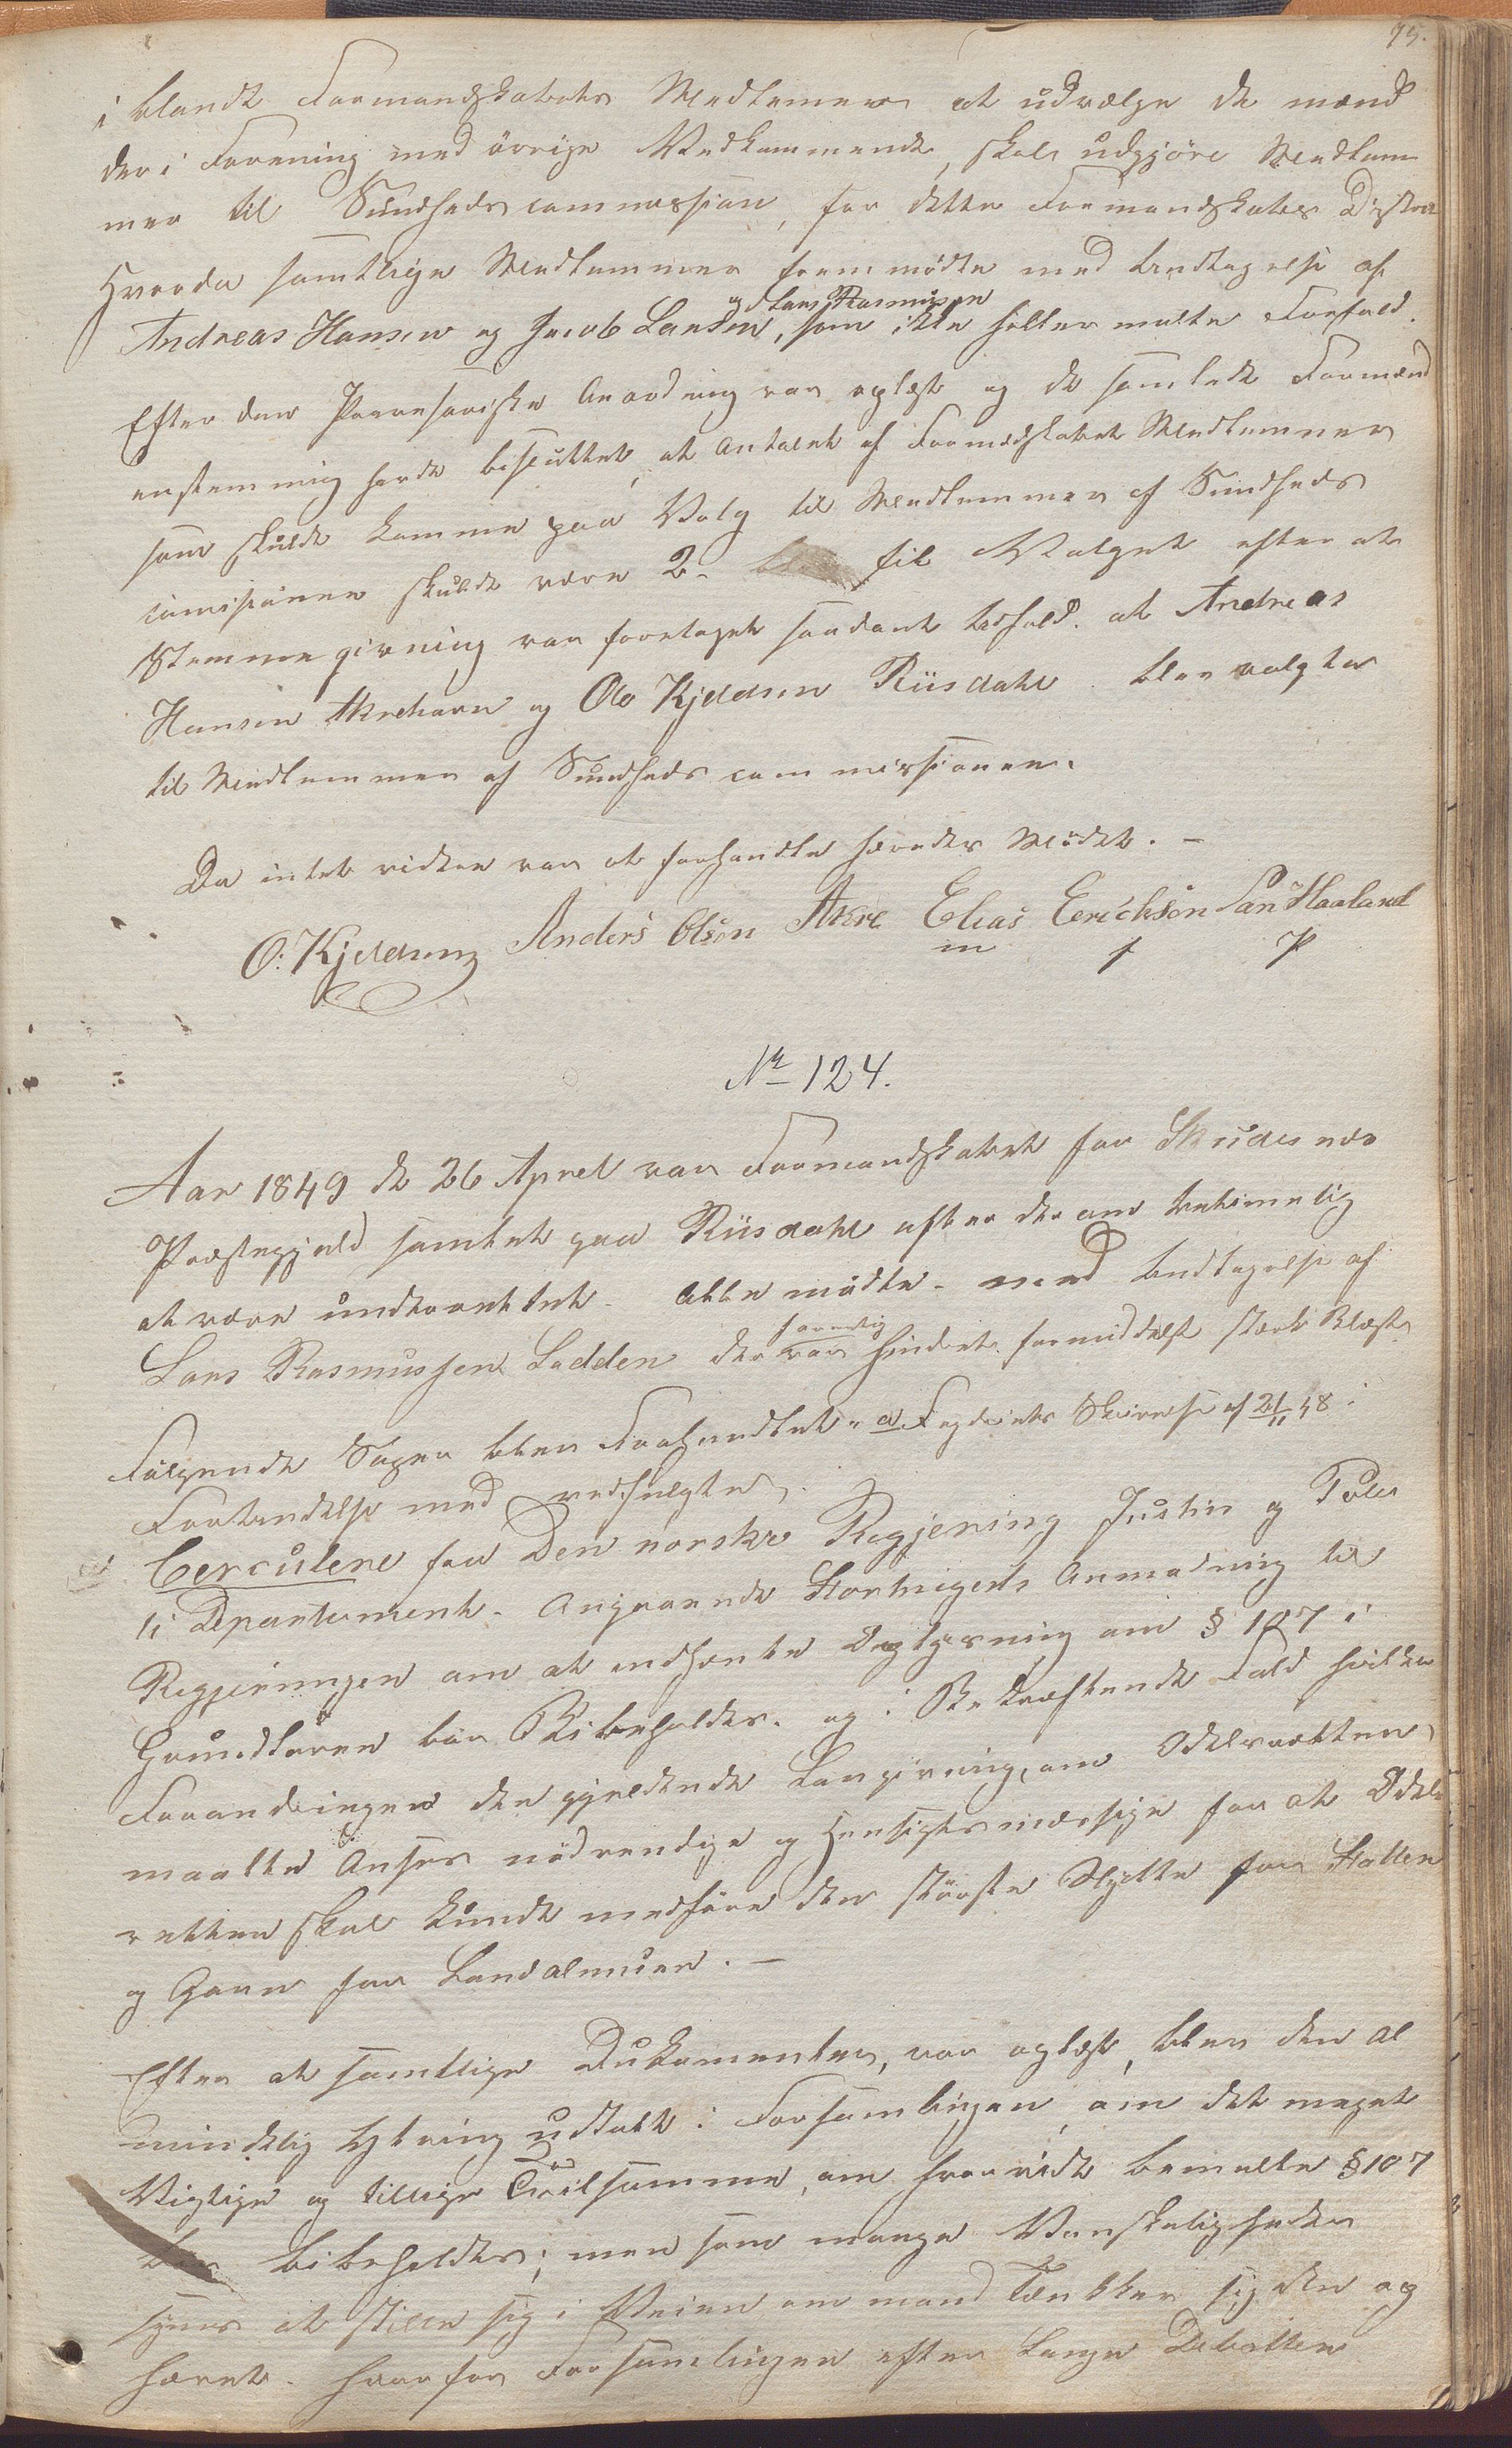 75.
i blandt Formandskabets Medlemer at udvælge de mænd
der i Forening med övrige Vedkommende, skal udgjöre Medlem
mer til Sundheds commission, for dette Formandskabs District
Hvorda samtlige Medlemmer fremmödte med undtagelse af
og Lars Rasmusen
Andreas Hansen og Jacob Larsen, som ikke heller meldte Forfald.
Efter den Provisoriske Anordning var oplæst og de samlede Formænd
enstemmig havde besluttet, at Antalet af Formandskabet Medlemmer
som skulde komme paa Valg til Medlemmer af Sundheds
comisionen skulde være 2. til Valget efter at
Stemmegivning var foretaget saadant udfald. at Andreas
Hansen Akrehavn og Ole Kjeldsen Riisdahl blev valgte
til Medlemmer af Sundheds commissionen.
Da intet videre var at forhandle hævedes Mödet. –
O: Kjeldsen Anders Olsen Akre Elias Eerichsen San Haaland
m f P
No 124.
Aar 1849 de 26 Aprel var Formandskabet for Skudesnes
Præstegjeld samlet paa Riisdahl efter derom betimelig
at være underrettet. Alle mödte. med undtagelse af
Lars Rasmussen Ladden der var hindret formedelst stærk Blæst
Fölgende Sager blev Forhandlet. a Fogderiets Skrivelse af 21/11 48 i
Forbindelse med vedfulgte
Cerculere fra Den norske Regjering Justis og Poli
ti Departement. Angaaende Storthingets Anmodning til
Regjeringen om at indhente Oplysning om § 107 i
Grundloven bör Bibeholdes. og i Bekræftende Fald hvilke
Forandringer den gjeldende Lovgivning, om Odelsretten
maatte Anses nödvendige og Hensigtsmæssige for at Odels
retten skal kunde medföre den störste Nytte for Staten
og Gavn for Landalmuen. –
Efter at samtlige Dukomenter, var oplæst, blev den al
mindelig Ytring udtalt i Forsamlingen, om det meget
Vigtige og tillige Tvilsomme, om hvorvidt bemeldte § 107
bör bibeholdes; men som mange Vanskeligheder
synes at stille sig i Veien om mand Tænkker sig den op
hævet. hvorfor Forsamlingen efter Lange Debatter